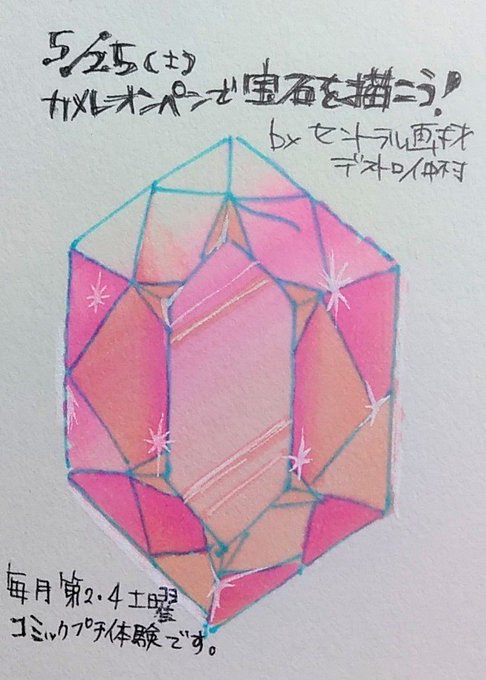 5/25(土)
カメレオンペンで宝石を描こう!
by セントラル画材
デストロイ中村
毎月第2.4土曜
コミックプチ体験です。